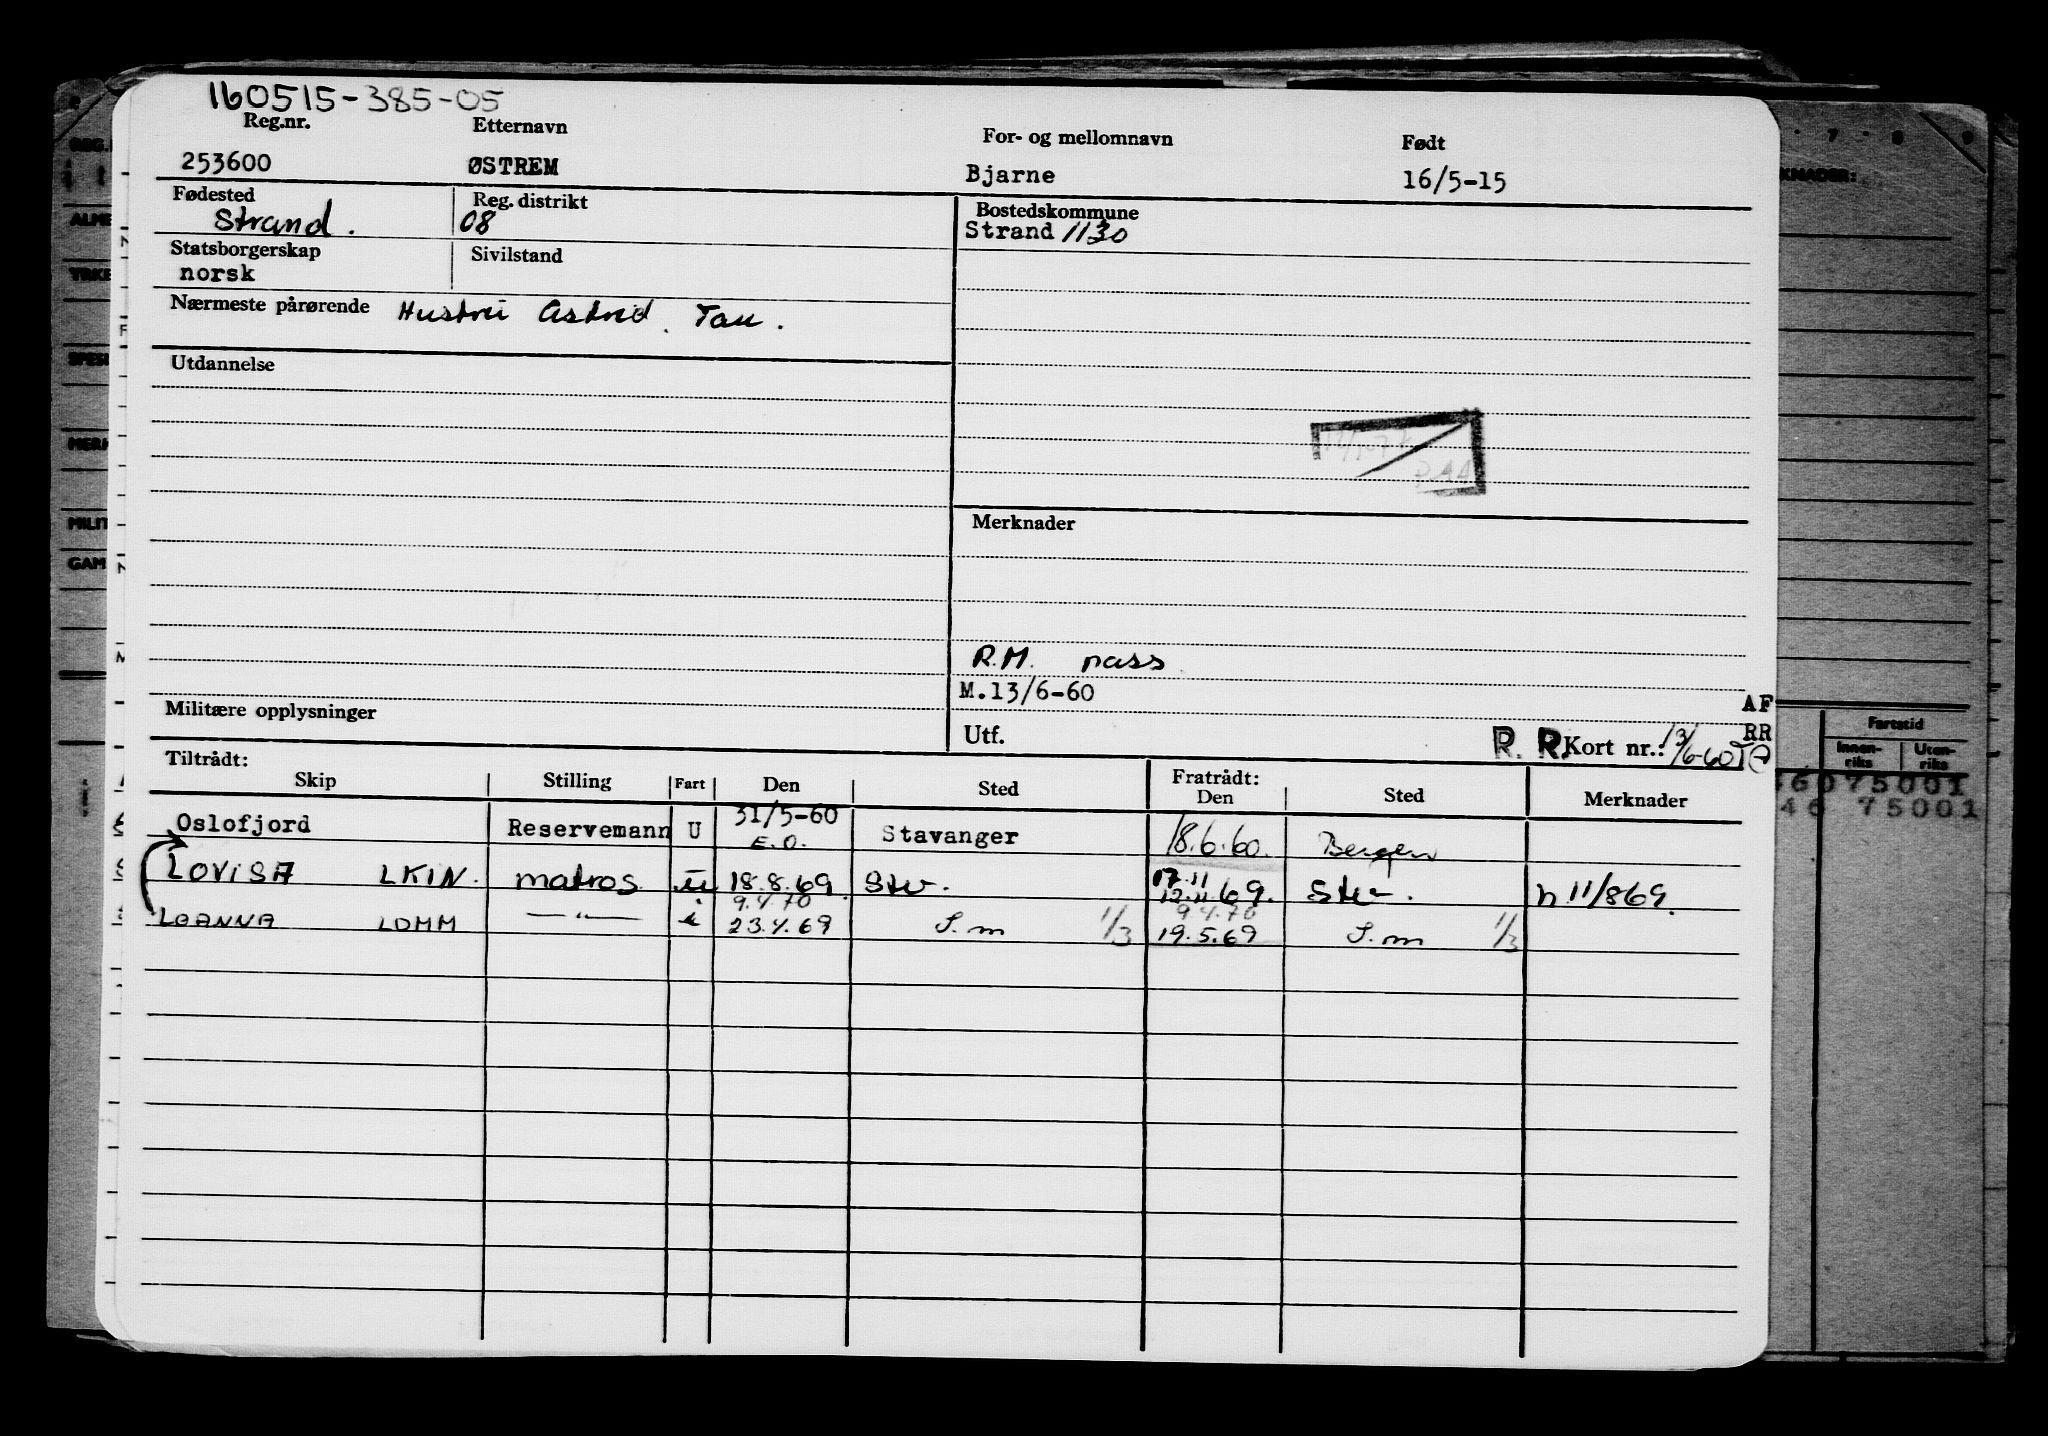 160515-385-05
Reg.nr. Etternavn For- og mellomnavn Født
253600 ØSTREM Bjarne 16/5-15
Fødested Reg. distrikt Bostedskommune
Strand. 08 Strand 1130
Statsborgerskap Sivilstand
norsk
Nærmeste pårørende Hustru Astrid. Tau.
Utdannelse
Merknader
R.M. pass
M.13/6-60
AF
Militære opplysninger Utf. R. R. Kort nr.: 13/6-60 RR
Tiltrådt: Fratrådt:
Skip Stilling Fart Den Sted Den Sted Merknader
Oslofjord Reservemann U 31/5-60 E.O. Stavanger 18.6.60. Bergen
LOVISA LKIN. matros u 18.8.69. Stv. 17.11 12.11.69. Stv. h 11/869.
9.4.70 9.4.70
LOANNA LDMM —"— i 23.4.69 S.m 1/3 19.5.69 S.m 1/3
KNADER:
Fartstid
Innen-riks Uten-riks
46075001
46 75001